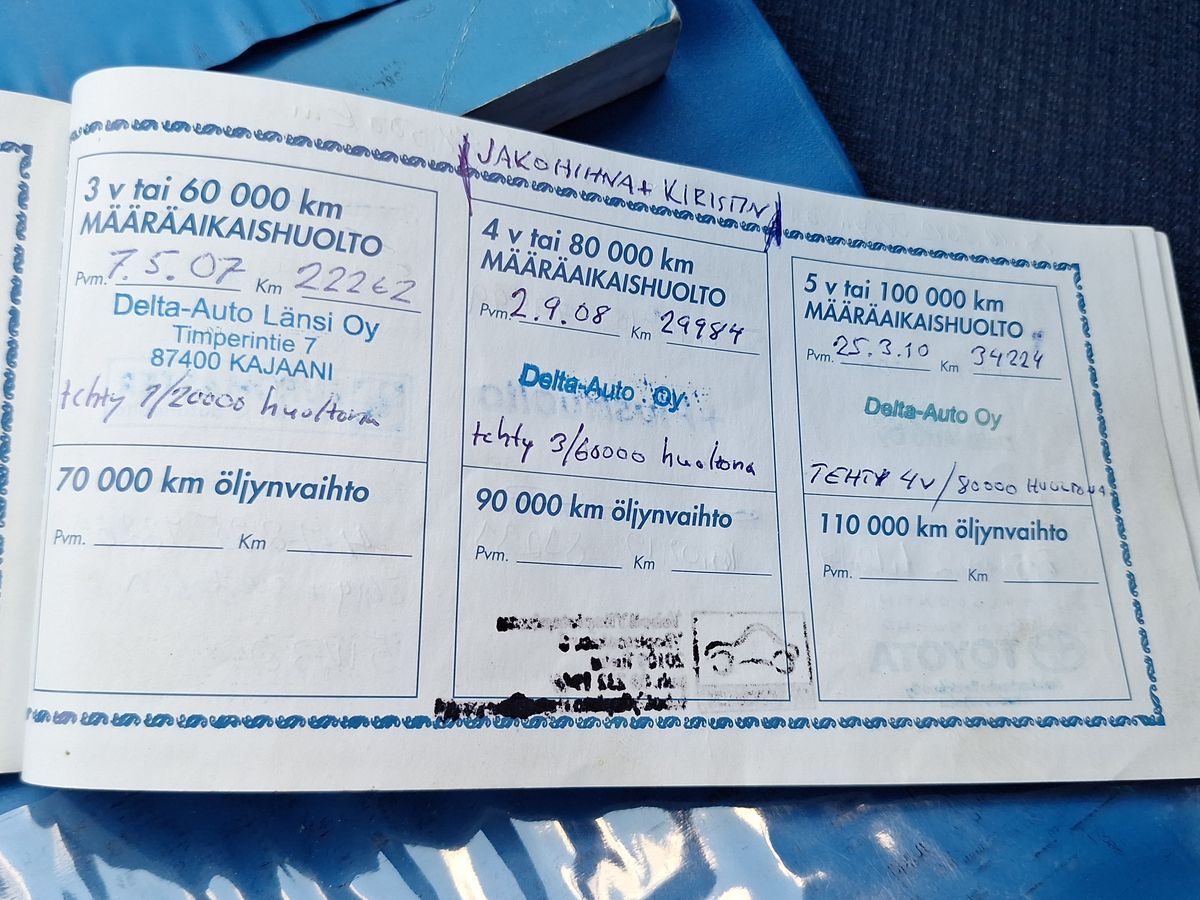 JAKOHIHNA + KIRISTIN
3 v tai 60 000 km
MÄÄRÄAIKAISHUOLTO
Pvm. 7.5.07 Km 22262
Delta-Auto Länsi Oy
Timperintie 7
87400 KAJAANI
tehty 1/20000 huoltona
70 000 km öljynvaihto
Pvm. Km
4 v tai 80 000 km
MÄÄRÄAIKAISHUOLTO
Pvm. 2.9.08 Km 29984
Delta-Auto Oy
tehty 3/60000 huoltona
90 000 km öljynvaihto
Pvm. Km
5 v tai 100 000 km
MÄÄRÄAIKAISHUOLTO
Pvm. 25.3.10 Km 34224
Delta-Auto Oy
TEHTY 4v/80000 HUOLTONA
110 000 km öljynvaihto
Pvm. Km
TOYOTA